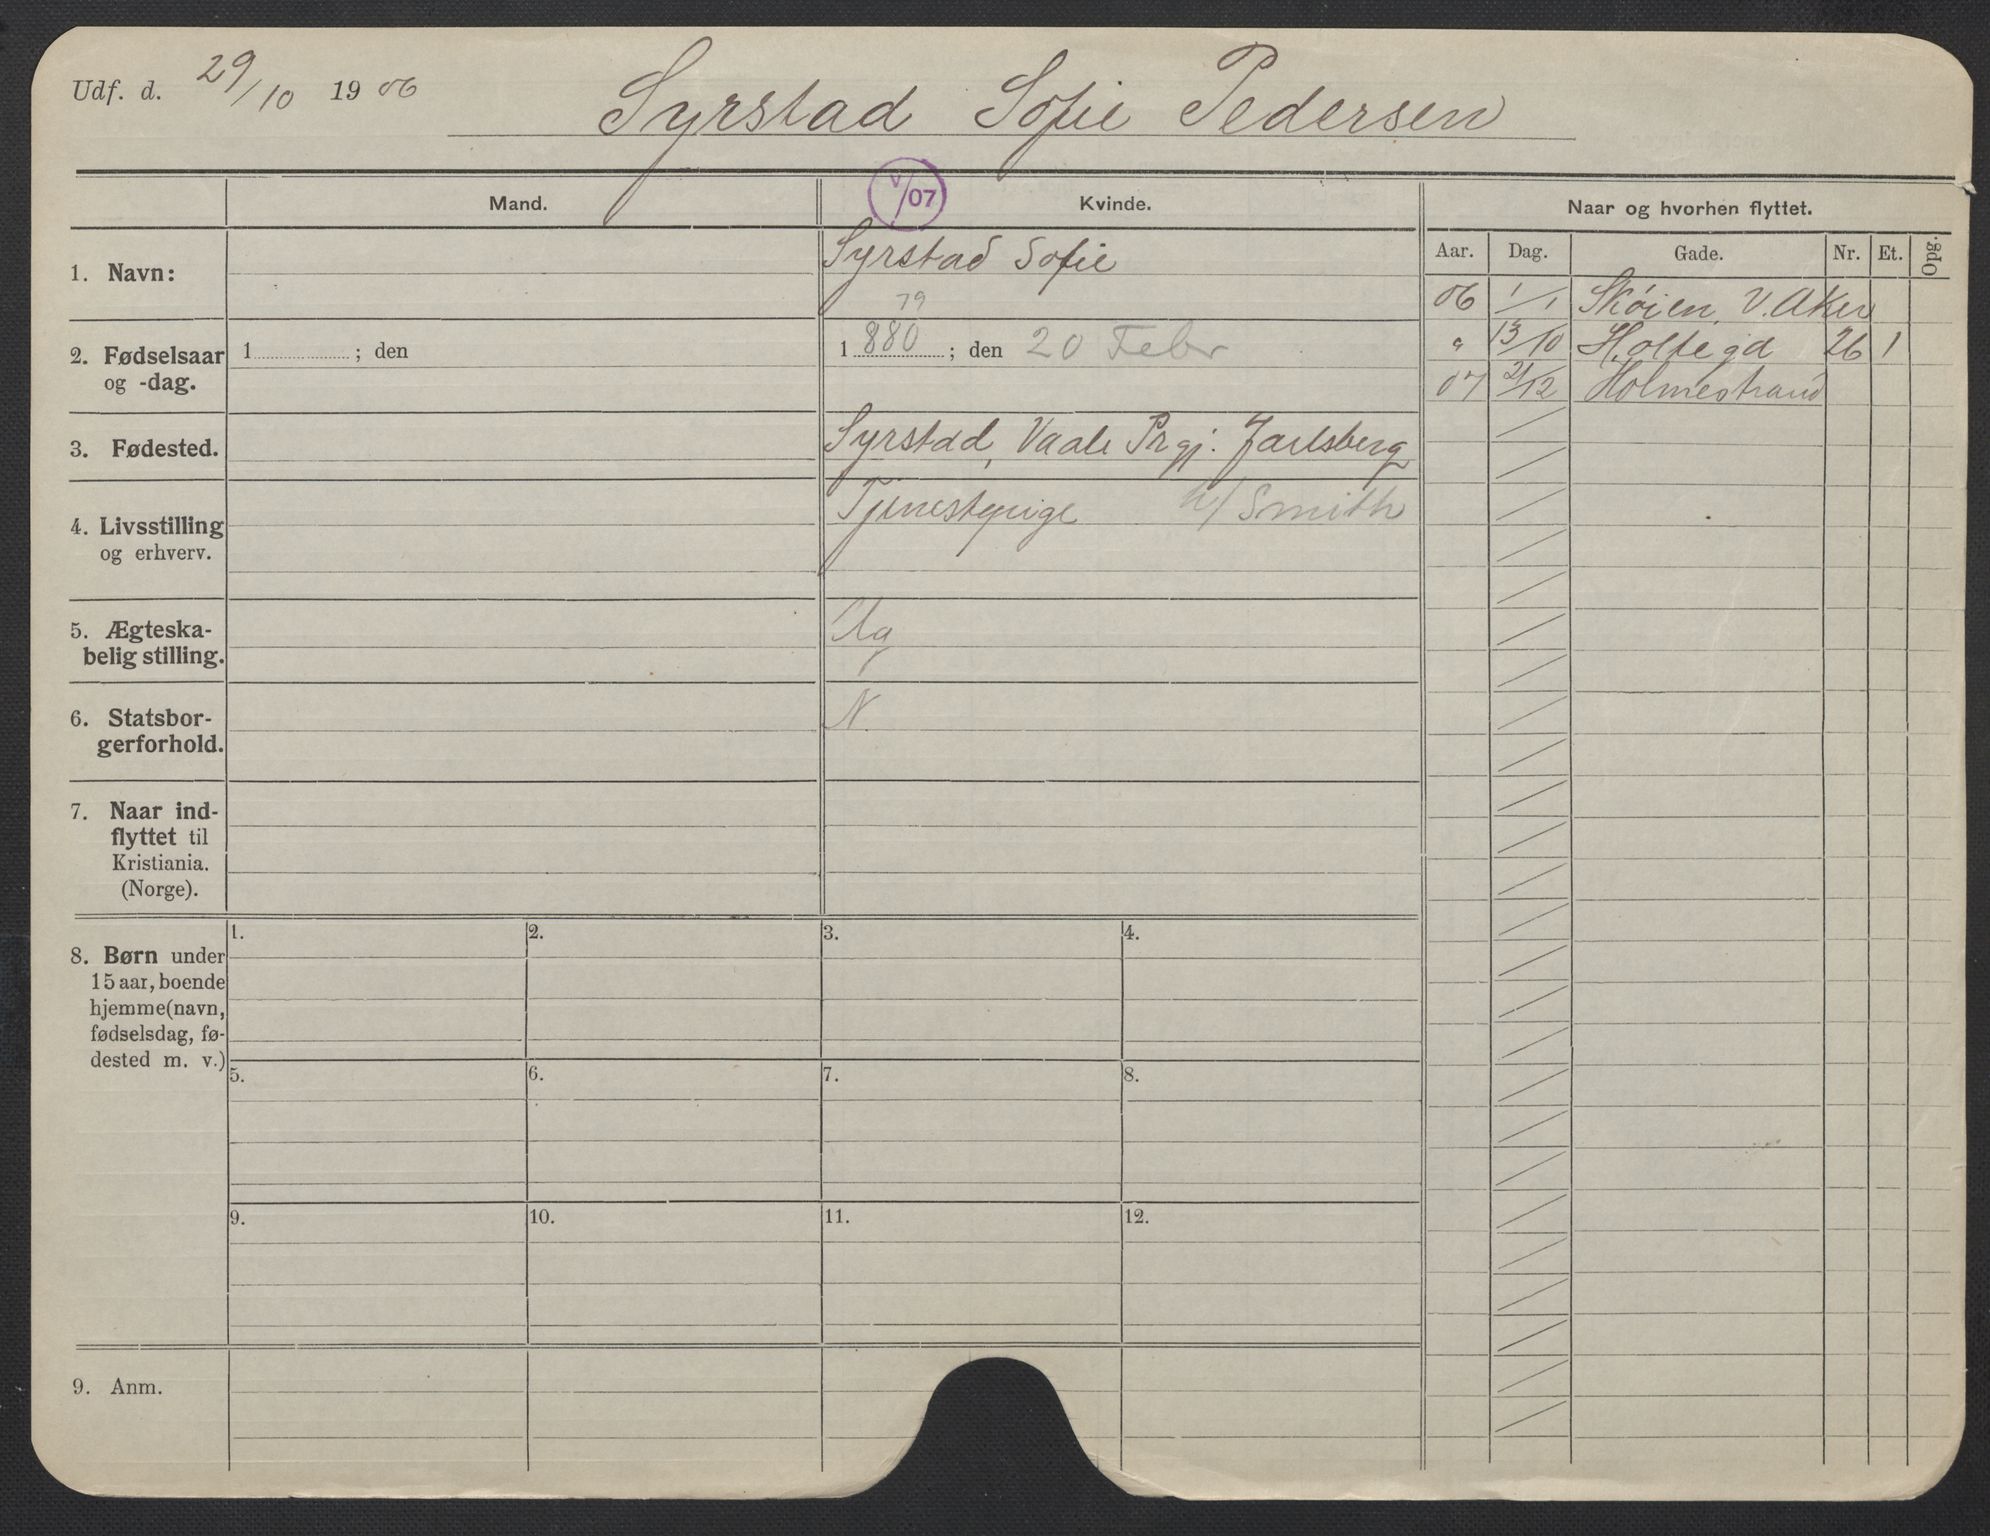 Udf. d. 29/10 1906
Syrstad Sofie Pedersen
Mand.
V/07
Kvinde.
Naar og hvorhen flyttet.
Aar. Dag. Gade. Nr. Et. Opg.
06 1/1 Skøien, V. Aker
" 13/10 Holtegd 26 1
07 21/12 Holmestrand
1. Navn:
Syrstad Sofie
79
2. Fødselsaar og -dag.
1 ; den
1 880 ; den 20 Febr
3. Fødested.
Syrstad, Vaale Prgj. Jarlsberg
4. Livsstilling og erhverv.
Tjenestepige h/ Smith
5. Ægteska-
belig stilling.
Ug
6. Statsbor-
gerforhold.
N
7. Naar ind-
flyttet til
Kristiania.
(Norge).
8. Børn under
15 aar, boende
hjemme (navn,
fødselsdag, fø-
dested m. v.)
1. 2. 3. 4.
5. 6. 7. 8.
9. 10. 11. 12.
9. Anm.